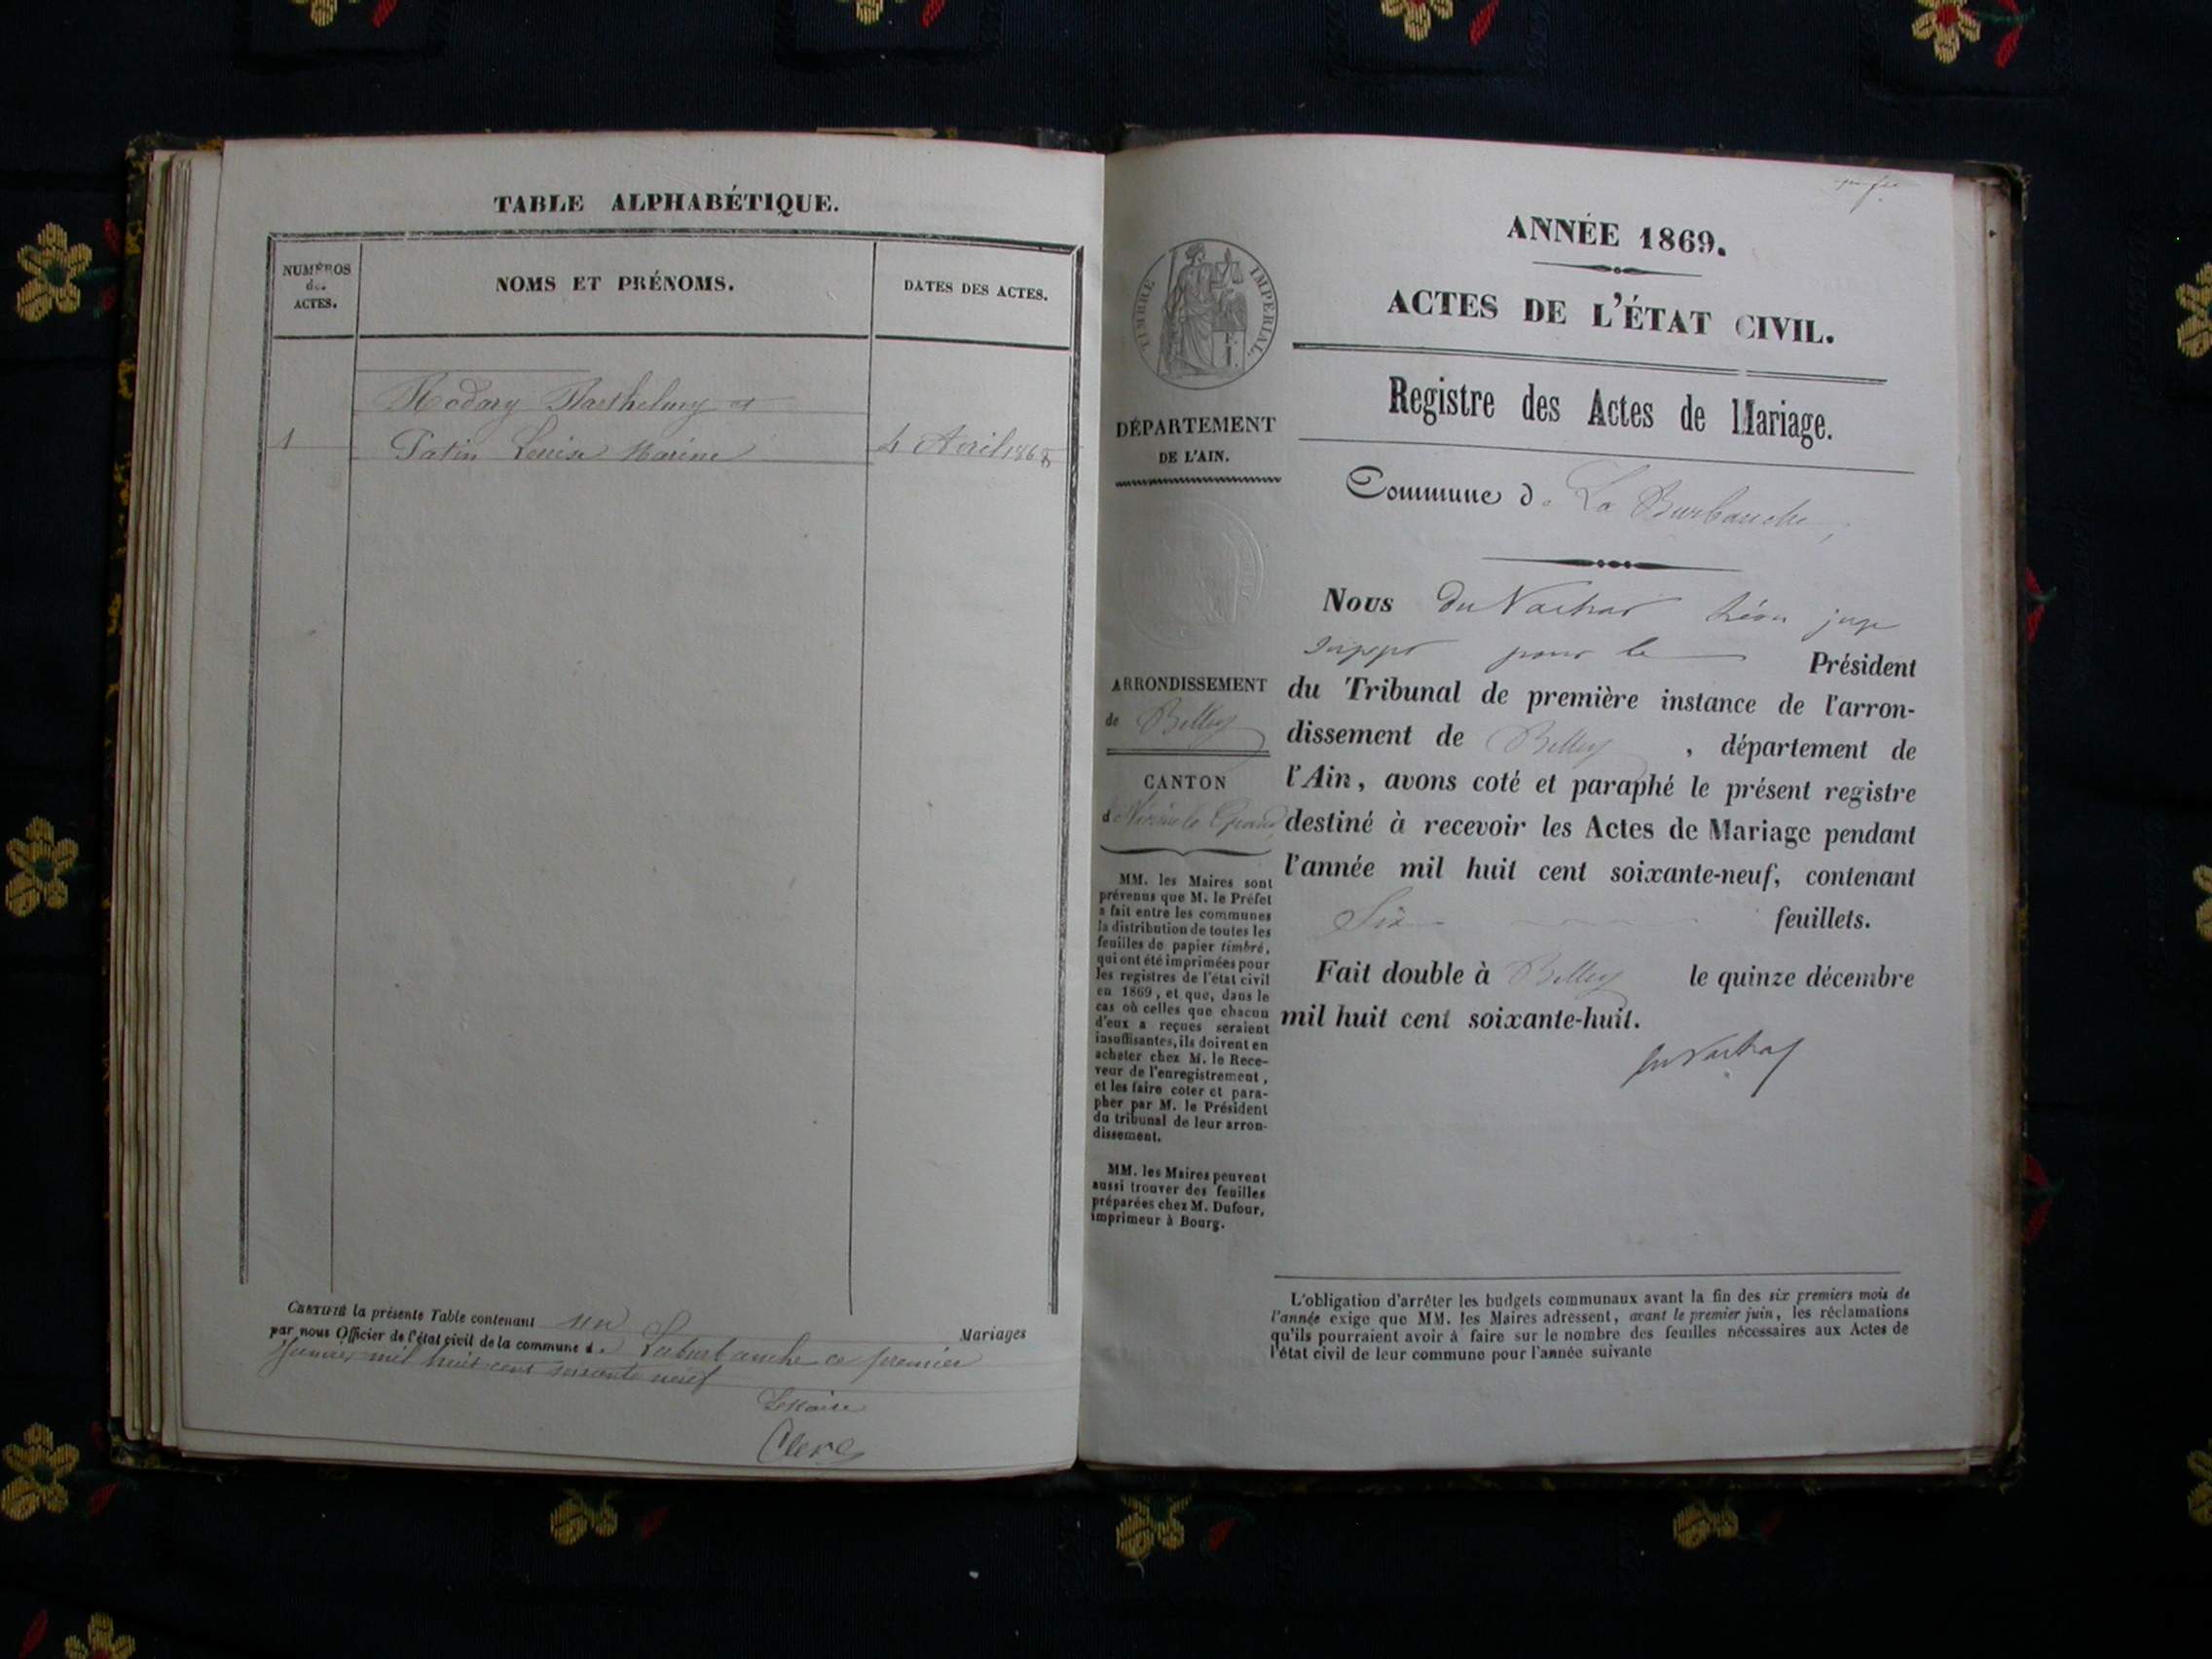 TABLE ALPHABÉTIQUE.
NUMÉROS
des
ACTES.
NOMS ET PRÉNOMS.
DATES DES ACTES.
Rodary Barthelmy et
1 Patin Louise Marine 4 Avril 1868
CERTIFIÉ la présente Table contenant un Mariages
par nous Officier de l'état civil de la commune de Laburbanche ce premier
Janvier mil huit cent soixante neuf
Le Maire
Clerc
ANNÉE 1869.
ACTES DE L'ÉTAT CIVIL.
Registre des Actes de Mariage.
Commune de La Burbanche,
TIMBRE IMPÉRIAL.
DÉPARTEMENT
DE L'AIN.
ARRONDISSEMENT
de Belley
CANTON
de Virieu le Grand
MM. les Maires sont
prévenus que M. le Préfet
a fait entre les communes
la distribution de toutes les
feuilles de papier timbré,
qui ont été imprimées pour
les registres de l'état civil
en 1869, et que, dans le
cas où celles que chacun
d'eux a reçues seraient
insuffisantes, ils doivent en
acheter chez M. le Rece-
veur de l'enregistrement,
et les faire coter et para-
pher par M. le Président
du tribunal de leur arron-
dissement.
MM. les Maires peuvent
aussi trouver des feuilles
préparées chez M. Dufour,
imprimeur à Bourg.
Nous du Vachat Léon juge
suppt pour le Président
du Tribunal de première instance de l'arron-
dissement de Belley, département de
l'Ain, avons coté et paraphé le présent registre
destiné à recevoir les Actes de Mariage pendant
l'année mil huit cent soixante-neuf, contenant
Six feuillets.
Fait double à Belley le quinze décembre
mil huit cent soixante-huit.
du Vachat
L'obligation d'arrêter les budgets communaux avant la fin des six premiers mois de
l'année exige que MM. les Maires adressent, avant le premier juin, les réclamations
qu'ils pourraient avoir à faire sur le nombre des feuilles nécessaires aux Actes de
l'état civil de leur commune pour l'année suivante